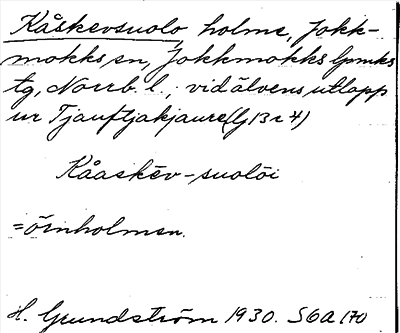 Kåskevsuolo, holme, Jokk-
mokks sn, Jokkmokks lpmks
tg, Norrb. l., vid älvens utlopp
ur Tjauftjakjaure (fj 13 c 4)
Kåaskēv-suolōi
= örnholmen.
H. Grundström 1930. S6A 170